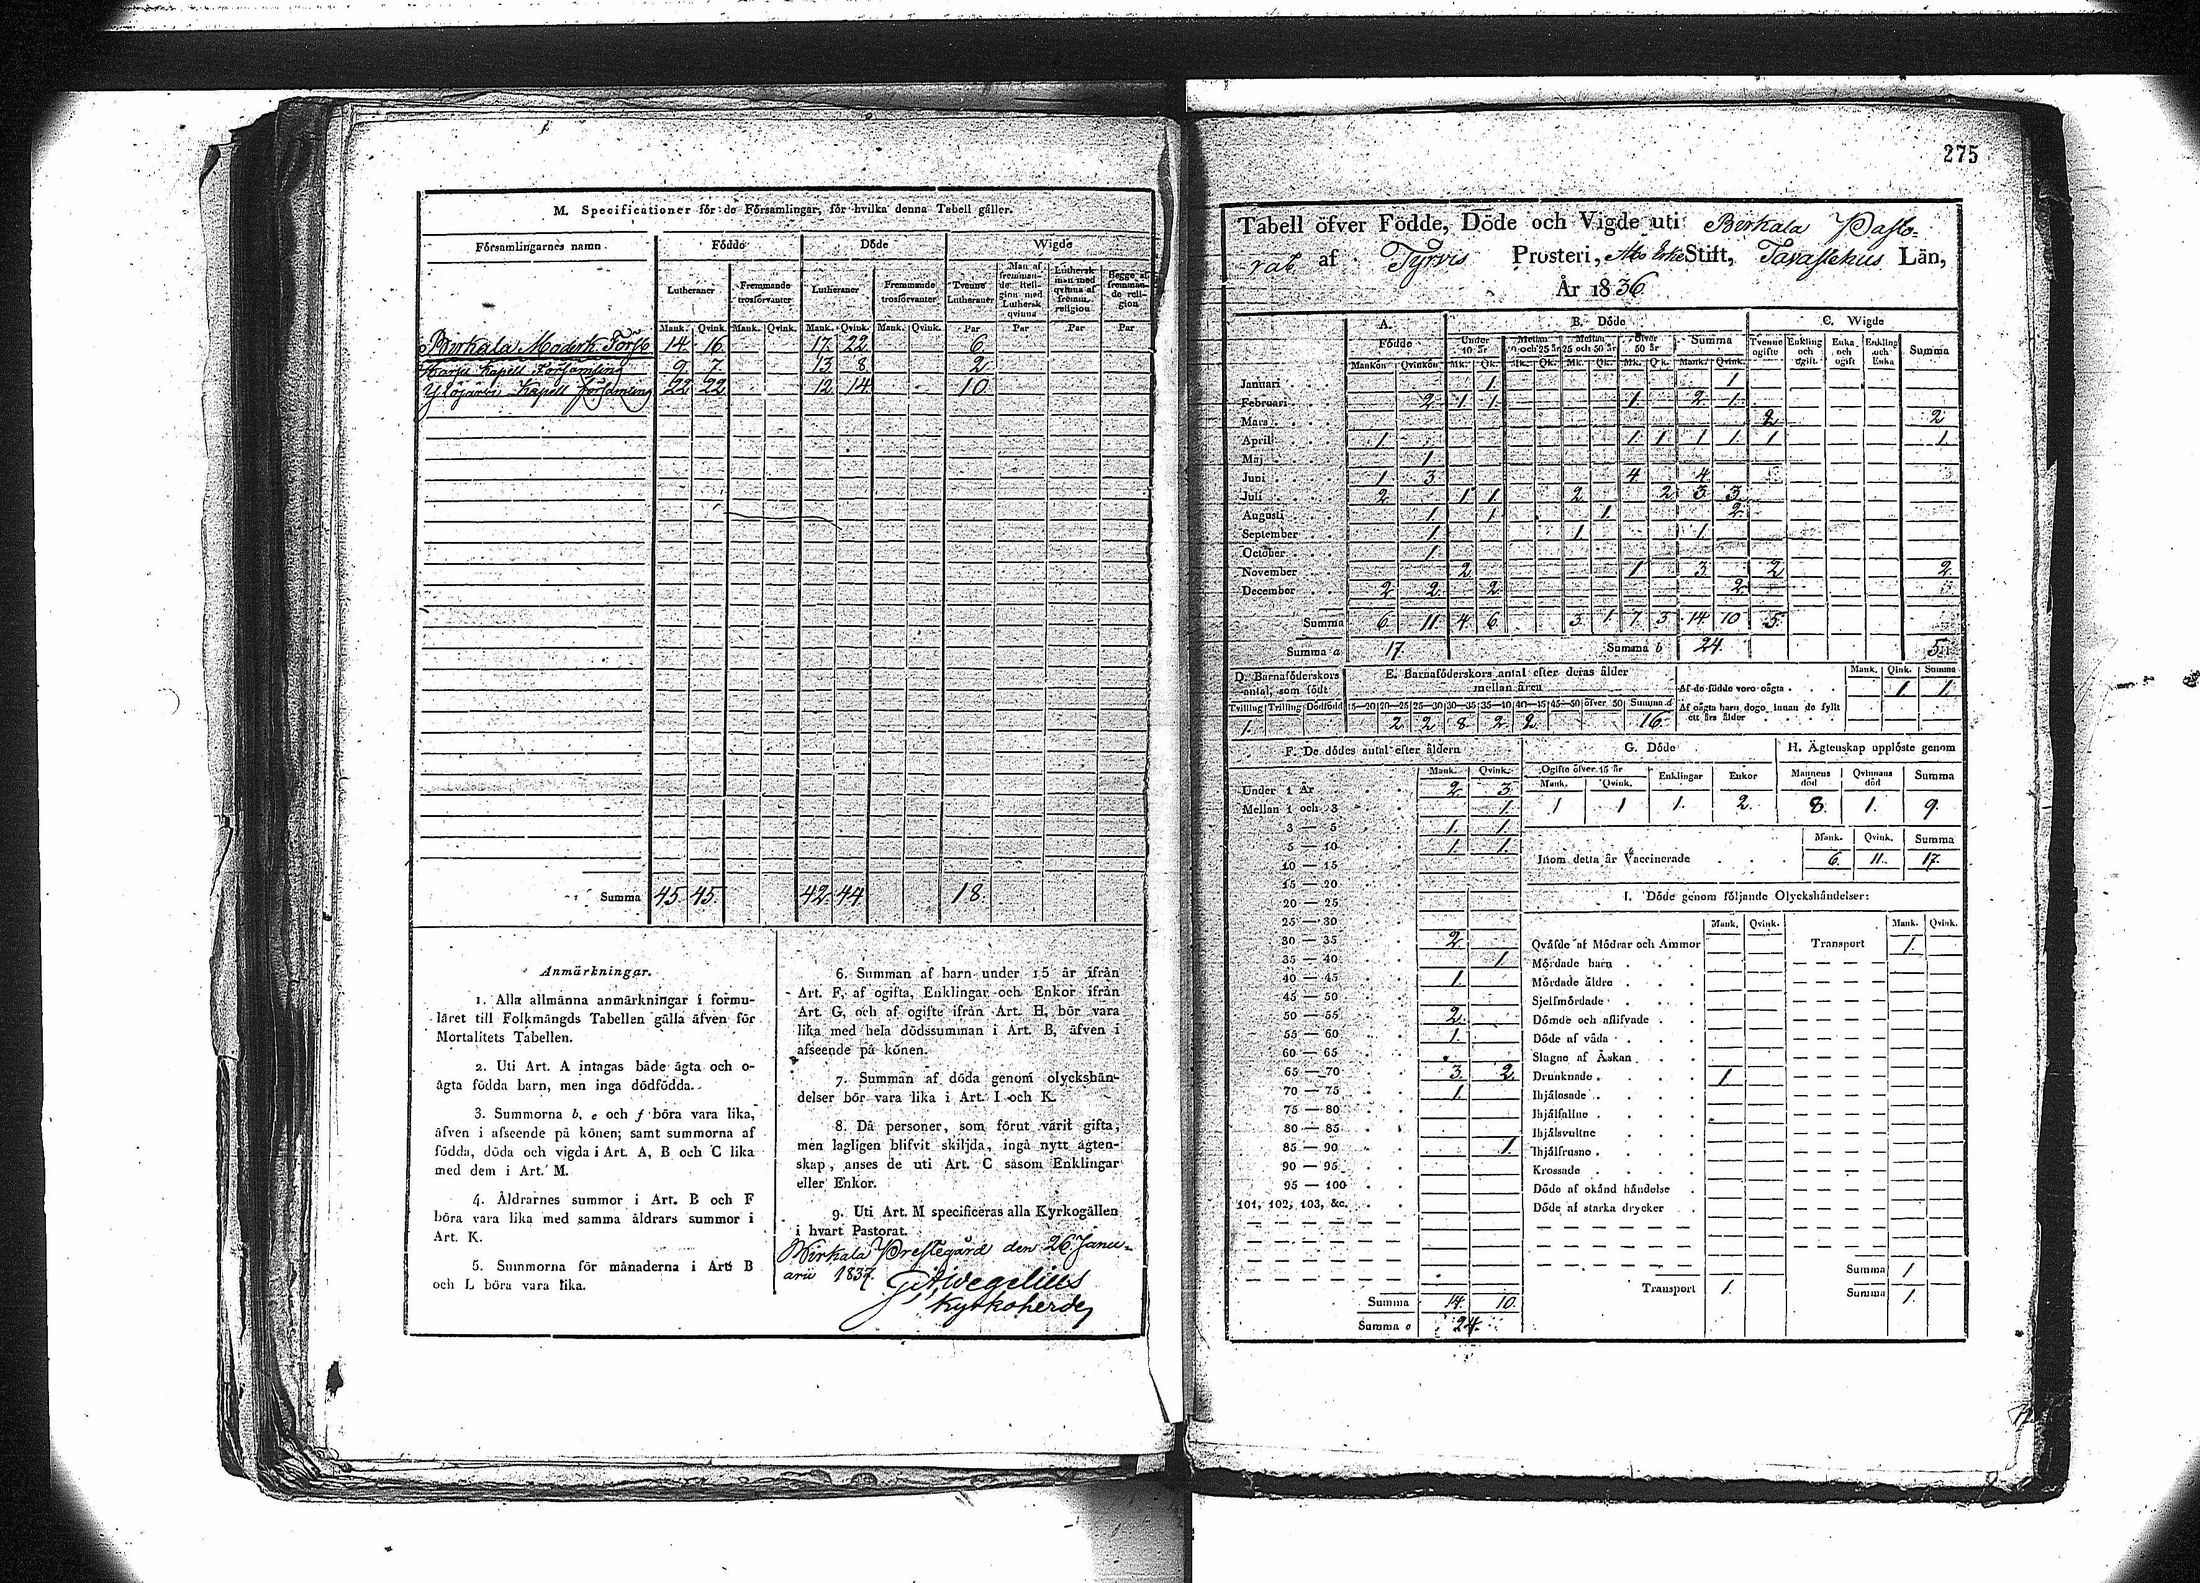 M. Specificationer för de Församlingar, för hvilka denna Tabell gäller.
Församlingarnes namn. Födde Döde Wigde
Lutheraner Fremmande trosförvanter Lutheraner Fremmande trosförvanter Tvenne Lutheraner Man af fremmande Religion med Luthersk qvinna Luthersk man med qvinna af fremm. religion Begge af fremmande religion
Mank. Qvink. Mank. Qvink. Mank. Qvink. Mank. Qvink. Par Par Par Par
Birkala Moderk. Förs. 14. 16. 17. 22. 6.
Kapell Församling 9. 7. 13. 8. 2.
Ylöjärvi Kapell Församling 22. 22. 12. 14. 10.
Summa 45. 45. 42. 44. 18.
Anmärkningar.
1. Alla allmänna anmärkningar i formu-
läret till Folkmängds Tabellen gälla äfven för
Mortalitets Tabellen.
2. Uti Art. A intagas både ägta och o-
ägta födda barn, men inga dödfödda.
3. Summorna b, e och f böra vara lika,
äfven i afseende på könen; samt summorna af
födda, döda och vigda i Art. A, B och C lika
med dem i Art. M.
4. Åldrarnes summor i Art. B och F
böra vara lika med samma åldrars summor i
Art. K.
5. Summorna för månaderna i Art. B
och L böra vara lika.
6. Summan af barn under 15 år ifrån
Art. F, af ogifta, Enklingar och Enkor ifrån
Art. G, och af ogifte ifrån Art. H, bör vara
lika med hela dödssumman i Art. B, äfven i
afseende på könen.
7. Summan af döda genom olyckshän-
delser bör vara lika i Art. I och K.
8. Då personer, som förut varit gifta,
men lagligen blifvit skiljda, ingå nytt ägten-
skap, anses de uti Art. C såsom Enklingar
eller Enkor.
9. Uti Art. M specificeras alla Kyrkogällen
i hvart Pastorat.
Birkala Prestegård den 26 Janu-
arii 1837.
Kyrkoherde
275
Tabell öfver Födde, Döde och Vigde uti Birkala Pasto-
rat af Tyrvis Prosteri, Åbo Erke Stift, Tavastehus Län,
År 1836.
A. Födde B. Döde C. Wigde
Under 10 år Mellan 10 och 25 år Mellan 25 och 50 år Öfver 50 år Summa Tvenne ogifte Enkling och ogift. Enka och ogift Enkling och Enka Summa
Mankön Qvinkön Mk. Qk. Mk. Qk. Mk. Qk. Mk. Qk. Mank. Qvink.
Januari 1. 1.
Februari 2. 1. 1. 1. 2. 1.
Mars 2. 2.
April 1. 1. 1. 1. 1. 1. 1.
Maj 1.
Juni 1. 3. 4. 4.
Juli 2. 1. 1. 2. 2. 3. 3.
Augusti 1. 1. 1. 2.
September 1. 1. 1.
October 1.
November 2. 1. 3. 2. 2.
December 2. 2. 2. 2.
Summa 6. 11. 4. 6. 3. 1. 7. 3. 14. 10. 5.
Summa a 17. Summa b 24. 5.
D. Barnaföderskors antal, som födt
Tvilling Trilling Dödfödd
1.
E. Barnaföderskors antal efter deras ålder mellan åren
15—20 20—25 25—30 30—35 35—40 40—45 45—50 öfver 50 Summa d
2. 2. 8. 2. 2. 16.
Mank. Qink. Summa
Af de födde voro oägta 1. 1.
Af oägta barn dogo innan de fyllt
ett års ålder
F. De dödes antal efter åldern
Mank. Qvink.
Under 1 År 2. 3.
Mellan 1 och 3 1.
3 — 5 1. 1.
5 — 10 1. 1.
10 — 15
15 — 20
20 — 25
25 — 30
30 — 35 2.
35 — 40 1
40 — 45 1.
45 — 50
50 — 55 2.
55 — 60 1.
60 — 65
65 — 70 3. 2.
70 — 75 1.
75 — 80
80 — 85
85 — 90 1.
90 — 95
95 — 100
101, 102, 103, &c.
Summa 14. 10.
Summa e 24.
G. Döde
Ogifte öfver 15 år Enklingar Enkor
Mank. Qvink.
1 1 1. 2.
H. Ägtenskap upplöste genom
Mannens död Qvinnans död Summa
8. 1. 9.
Mank. Qvink. Summa
Inom detta år Vaccinerade 6. 11. 17.
I. Döde genom följande Olyckshändelser:
Mank. Qvink. Mank. Qvink.
Qväfde af Mödrar och Ammor Transport 1.
Mördade barn
Mördade äldre
Sjelfmördade
Dömde och aflifvade
Döde af våda
Slagne af Åskan
Drunknade 1
Ihjälosade
Ihjälfallne
Ihjälsvultne
Ihjälfrusne
Krossade
Döde af okänd händelse
Döde af starka drycker
Summa 1
Transport 1. Summa 1.